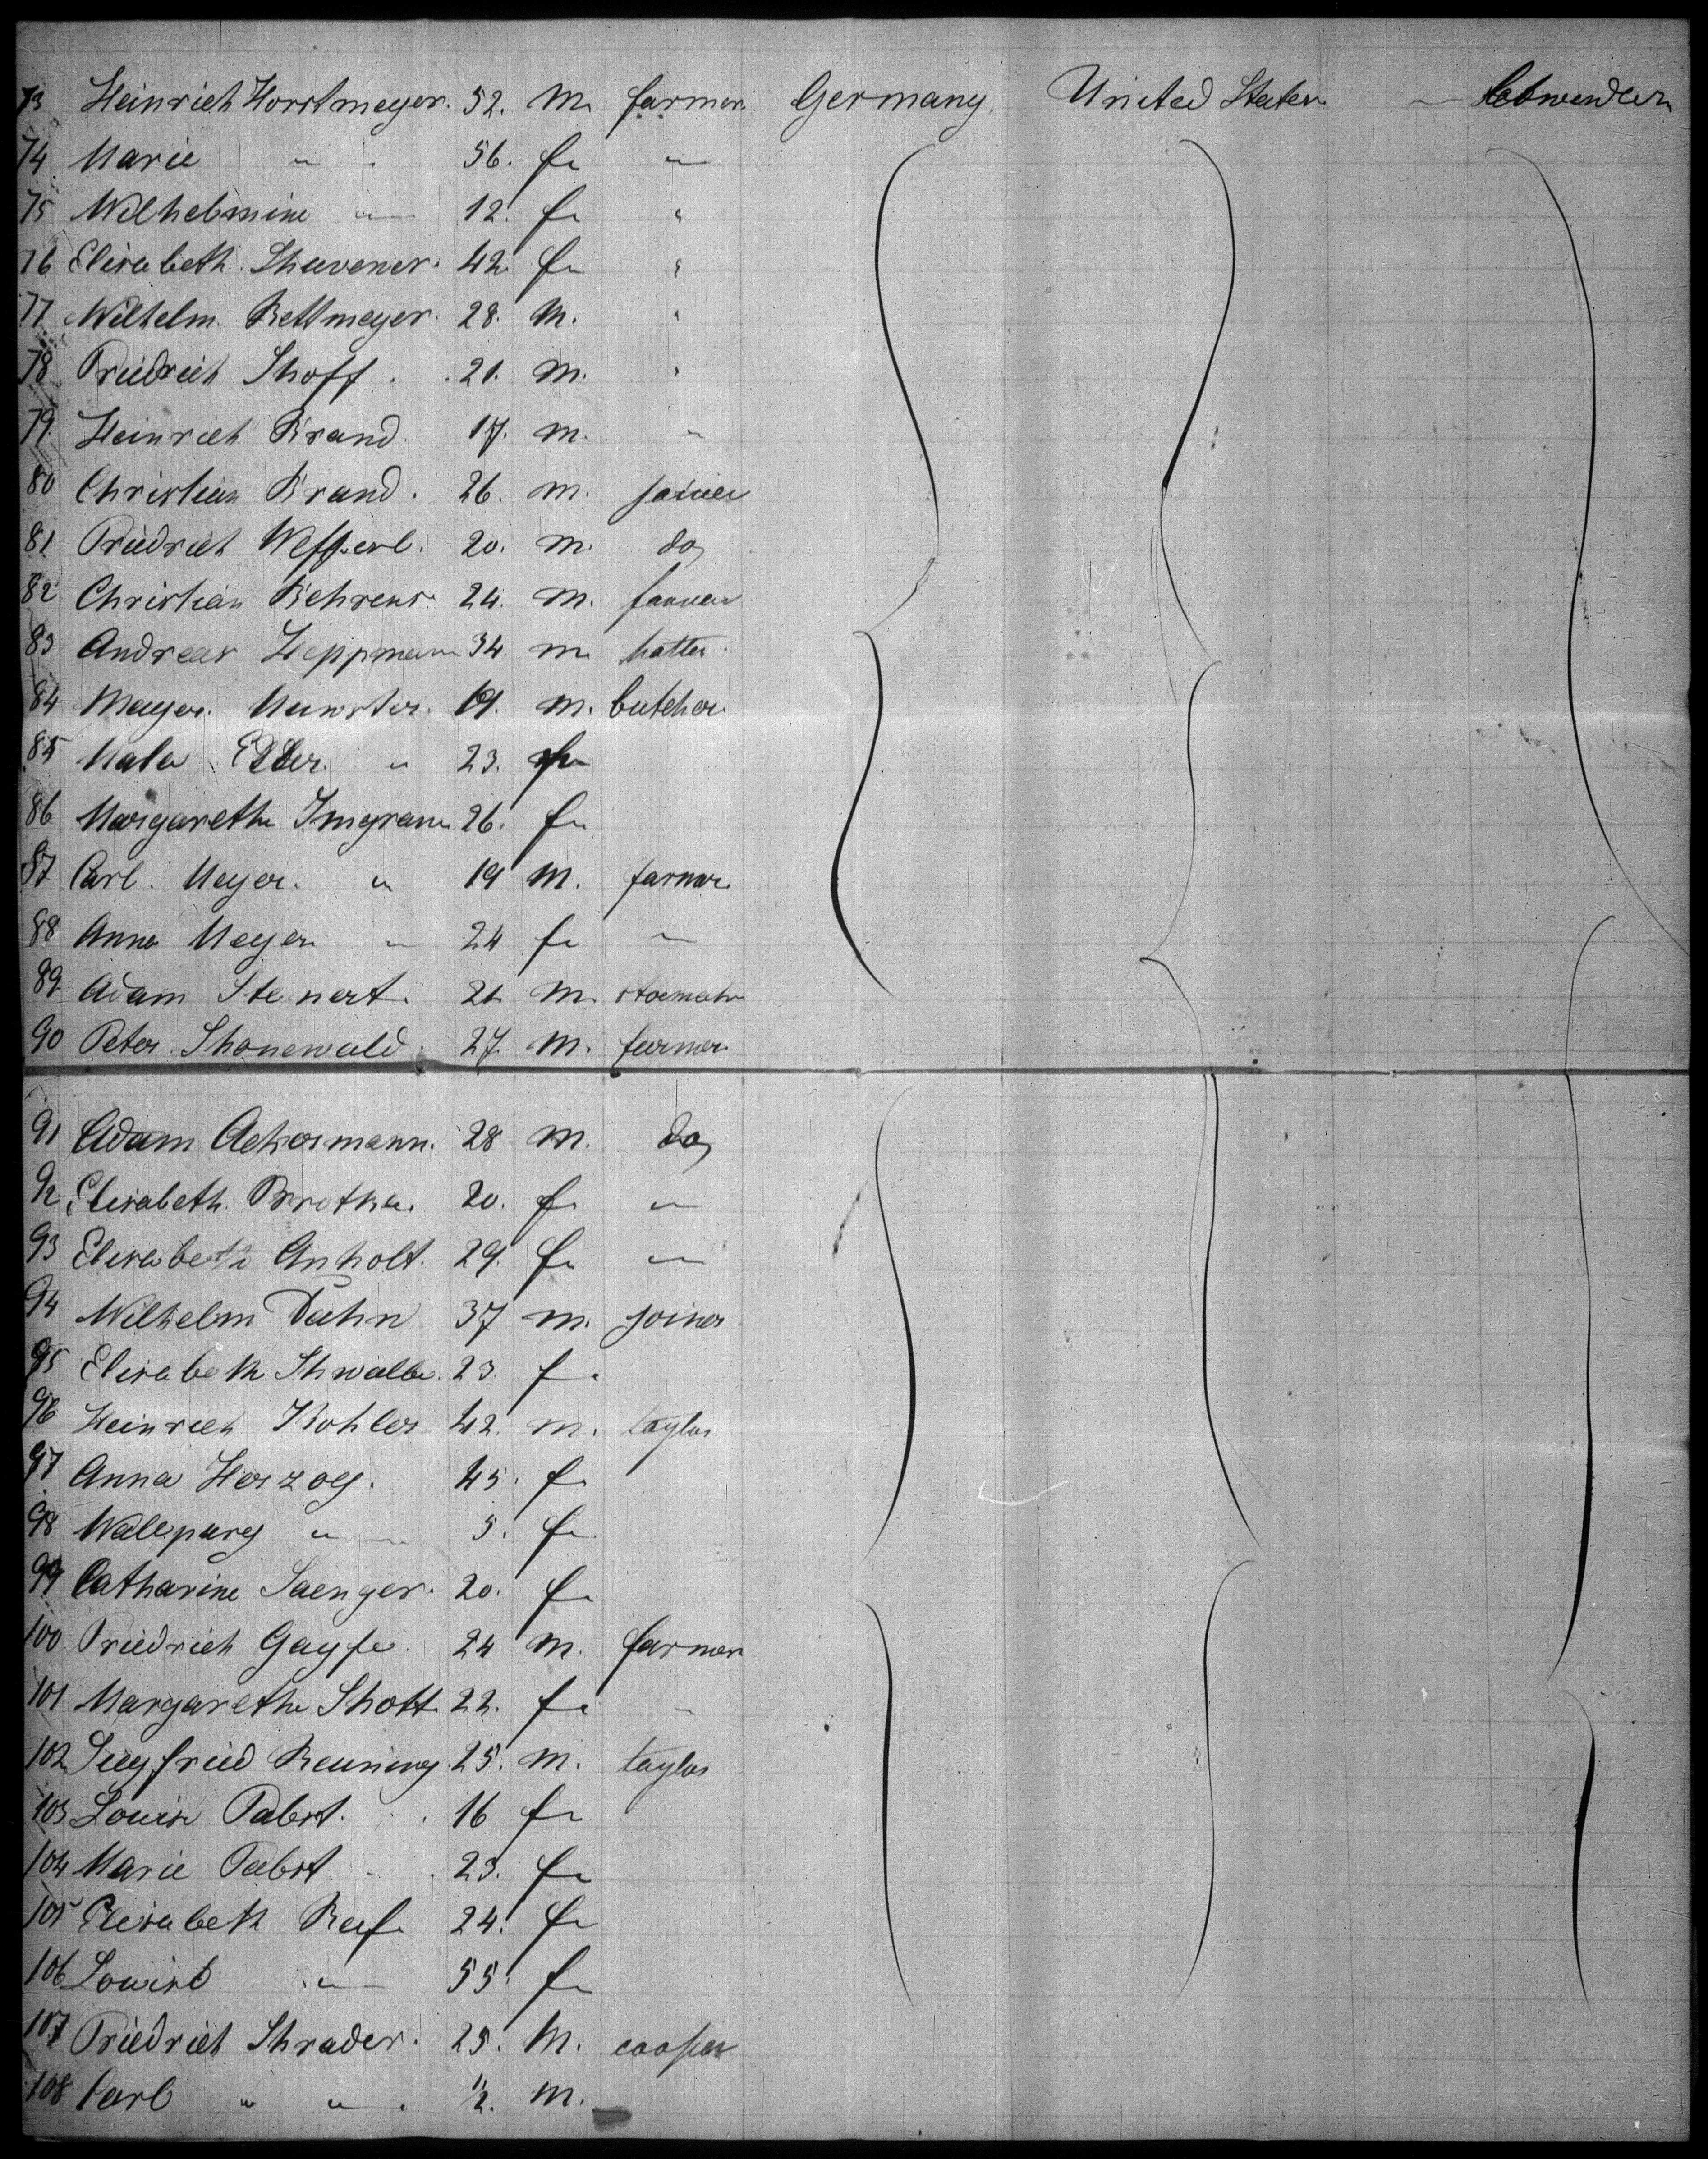 73 Heinrich Horstmeyer. 52. m. farmer Germany. United States —
74 Marie " 56. f. "
75 Wilhelmine " 12. f. "
76 Elisabeth. Shuvener. 42. f. "
77 Wilhelm. Rettmeyer. 28. m. "
78 Friedrich Shoff. 21. m. "
79 Heinrich Brand. 17. m. "
80 Christian Brand. 26. m. joiner
81 Friedrich 20. m. do
82 Christian Behrens. 24. m. farmer
83 Andreas Heppmann 34. m. hatter.
84 Meyer. Munster. 19. m. butcher
85 " 23. f.
86 Margarethe 26. f.
87 Carl. Meyer. " 19 m. farmer
88 Anna Meyer " 24 f. "
89 Adam Steinert. 21. m.
90 Peter. Shonewald. 27. m. farmer
91 Adam Ackermann. 28 m. do
92 Elisabeth. 20. f. "
93 Elisabeth Anholt. 29. f. "
94 Wilhelm Dahn 37 m. joiner
95 Elisabeth Shwalbe. 23. f.
96 Heinrich Kohler 42. m. taylor
97 Anna Herzog. 45. f.
98 Wallpurg " 5. f.
99 Catharine Saenger. 20. f.
100 Friedrich 24 m. farmer
101 Margarethe Shott 22. f. "
102 Siegfried Reuning. 25. m. taylor
103 Louise Pabst. 16 f.
104 Marie Pabst 23. f.
105 Elisabeth Reef 24. f.
106 Louise " 55. f.
107 Friedrich Shrader. 25. m. cooper
108 Carl " " m.